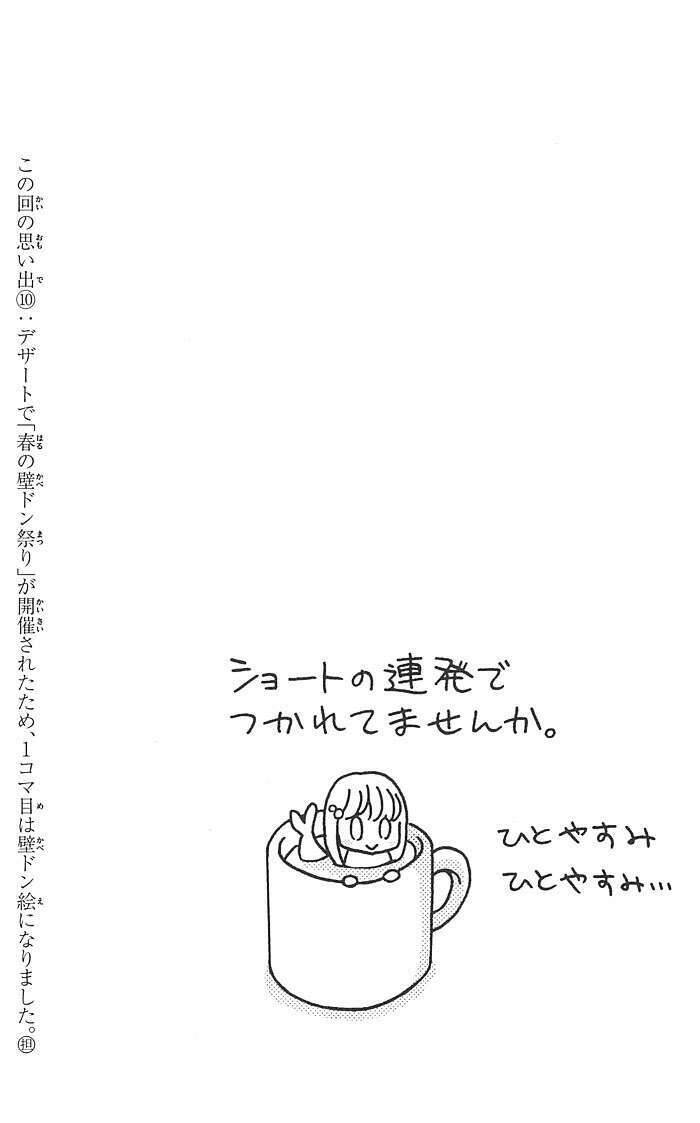 ショートの連発で
つかれてませんか。
ひとやすみ
ひとやすみ…
この回の思い出⑩：デザートで「春の壁ドン祭り」が開催されたため、1コマ目は壁ドン絵になりました。㊥